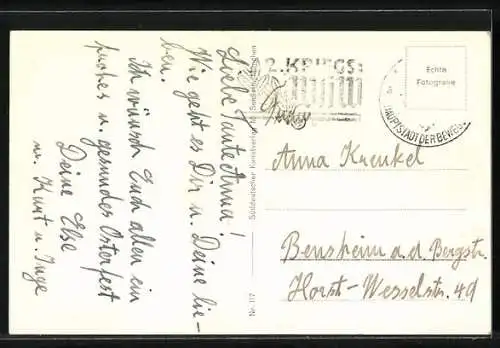 Liebe Tante Anna!
Wie geht es Dir u. Deine lie-
ben.
Ich wünsch Euch allen ein
frohes u. gesundes Osterfest
Deine Else
u. Kurt u. Inge
2. KRIEGS-
WHW
Echte
Fotografie
HAUPTSTADT DER BEWEG
Süddeutscher
Anna Krenkel
Bensheim a.d. Bergstr.
Horst-Wesselstr. 49